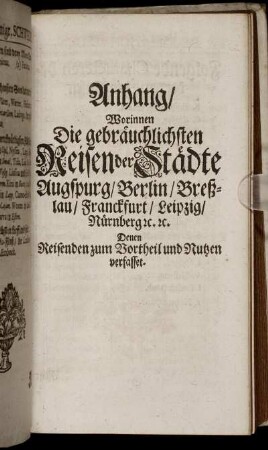 Anhang/
Worinnen
Die gebräuchlichsten
Reisen der Städte
Augspurg/Berlin/Breß-
lau/Franckfurt/Leipzig/
Nürnberg ꝛc. ꝛc.
Denen
Reisenden zum Vortheil und Nutzen
verfasset.